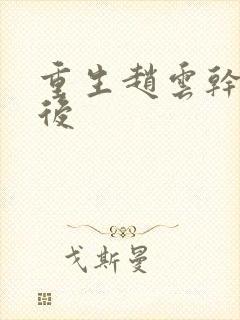 重生趙雲幹
後
戈斯曼